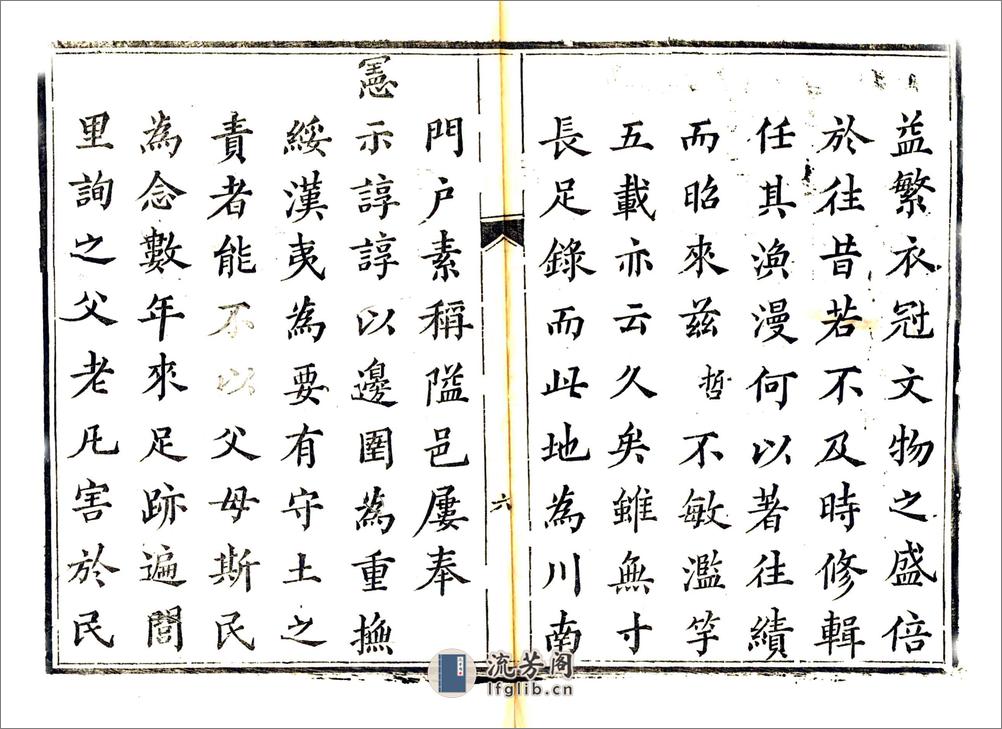 益繁衣冠文物之盛倍
於往昔若不及時修輯
任其渙漫何以著往績
而昭來茲哲不敏濫竽
五載亦云久矣雖無寸
長足錄而此地為川南
六
門户素稱隘邑屢奉
憲示諄諄以邊圉為重撫
綏漢夷為要有守土之
責者能不以父母斯民
為念數年來足跡遍閭
里詢之父老凡害於民
流芳阁
lfglib.cn